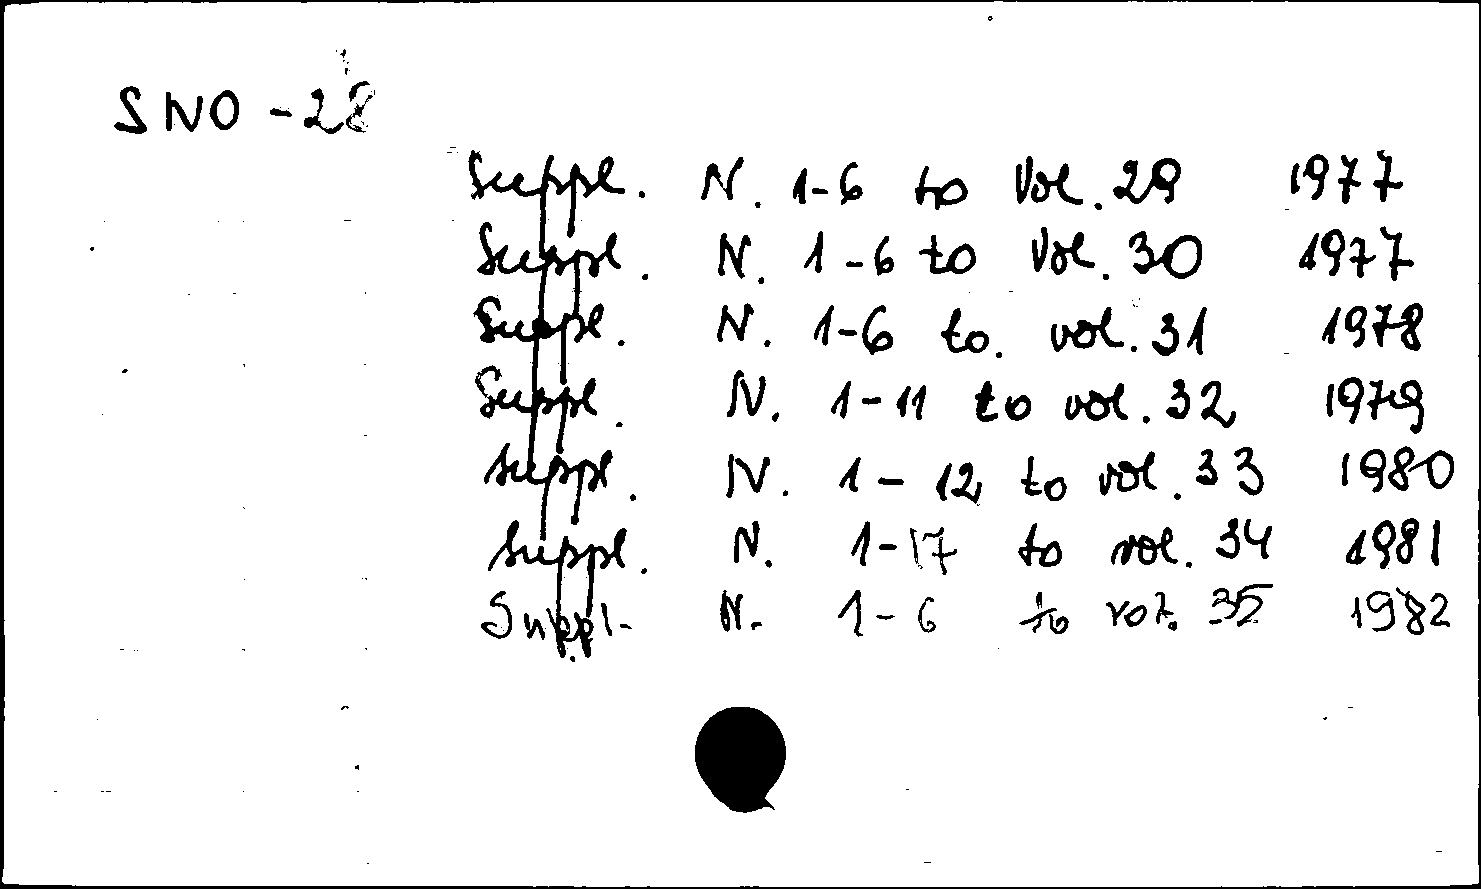 SNO - 28
Suppl. N. 1-6 to Vol. 29 1977
Suppl. N. 1-6 to Vol. 30 1977
Suppl. N. 1-6 to. vol. 31 1978
Suppl. N. 1-11 to vol. 32 1979
Suppl. N. 1-12 to vol. 33 1980
Suppl. N. 1-17 to vol. 34 1981
Suppl- N. 1-6 to vol. 35 1982